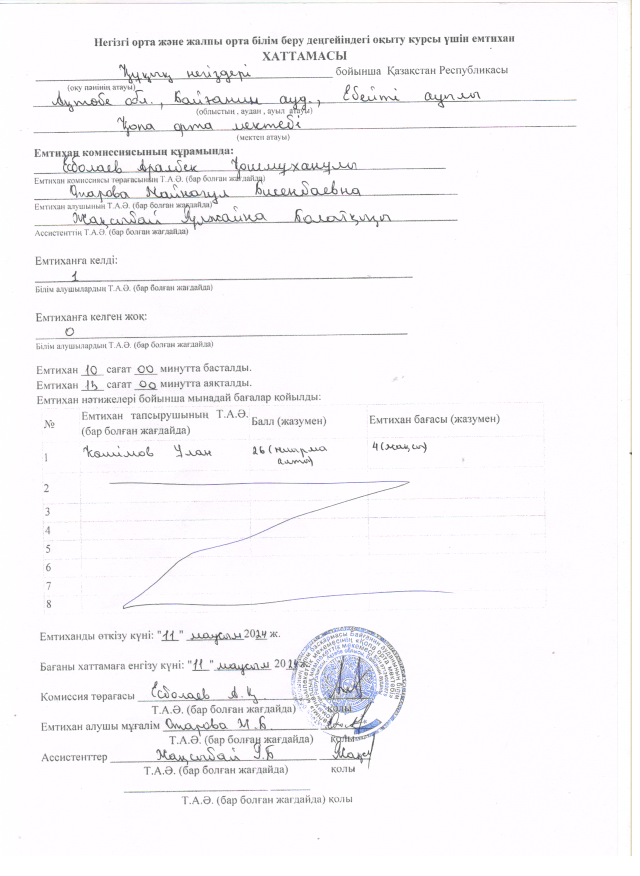 Негізгі орта және жалпы орта білім беру деңгейіндегі оқыту курсы үшін емтихан
ХАТТАМАСЫ
Құқық негіздері бойынша Қазақстан Республикасы
(оқу пәнінің атауы)
Ақтөбе обл., Байғанин ауд., Ебейті ауылы
(облыстың , аудан , ауыл атауы)
Қопа орта мектебі
(мектеп атауы)
Емтихан комиссиясының құрамында:
Есболаев Аралбек
Емтихан комиссиясы төрағасының Т.А.Ә. (бар болған жағдайда)
Отарова Майнагул Бисенбаевна
Емтихан алушының Т.А.Ә. (бар болған жағдайда)
Жақсыбай Гулжайна Болатқызы
Ассистенттің Т.А.Ә. (бар болған жағдайда)
Емтиханға келді:
1
Білім алушылардың Т.А.Ә. (бар болған жағдайда)
Емтиханға келген жоқ:
0
Білім алушылардың Т.А.Ә. (бар болған жағдайда)
Емтихан 10 сағат 00 минутта басталды.
Емтихан 13 сағат 00 минутта аяқталды.
Емтихан нәтижелері бойынша мынадай бағалар қойылды:
№ Емтихан тапсырушының Т.А.Ә. (бар болған жағдайда) Балл (жазумен) Емтихан бағасы (жазумен)
1 Улан 26 (жиырма алты) 4 (жақсы)
2
3
4
5
6
7
8
Емтиханды өткізу күні: "11" маусым 2024 ж.
Бағаны хаттамаға енгізу күні: "11" маусым 2024 ж.
Комиссия төрағасы Есболаев А.Қ
Т.А.Ә. (бар болған жағдайда) қолы
Емтихан алушы мұғалім Отарова М.Б
Т.А.Ә. (бар болған жағдайда) қолы
Ассистенттер Жақсыбай Г.Б
Т.А.Ә. (бар болған жағдайда) қолы
Т.А.Ә. (бар болған жағдайда) қолы